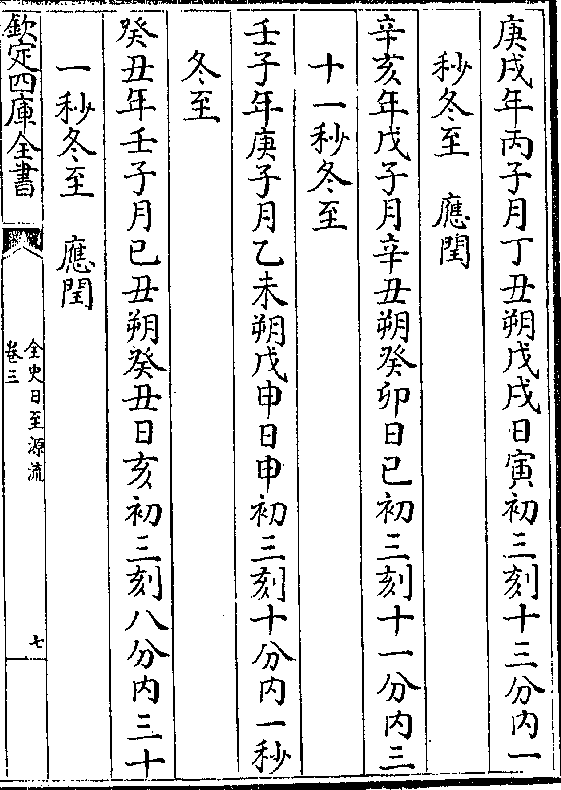 庚戌年丙子月丁丑朔戊戌日寅初三刻十三分内一
秒冬至　應閏
辛亥年戊子月辛丑朔癸卯日巳初三刻十一分内三
十一秒冬至
壬子年庚子月乙未朔戊申日申初三刻十分内一秒
冬至
癸丑年壬子月已丑朔癸丑日亥初三刻八分内三十
一秒冬至　應閏
欽定四庫全書
全史日至源流
卷三
七